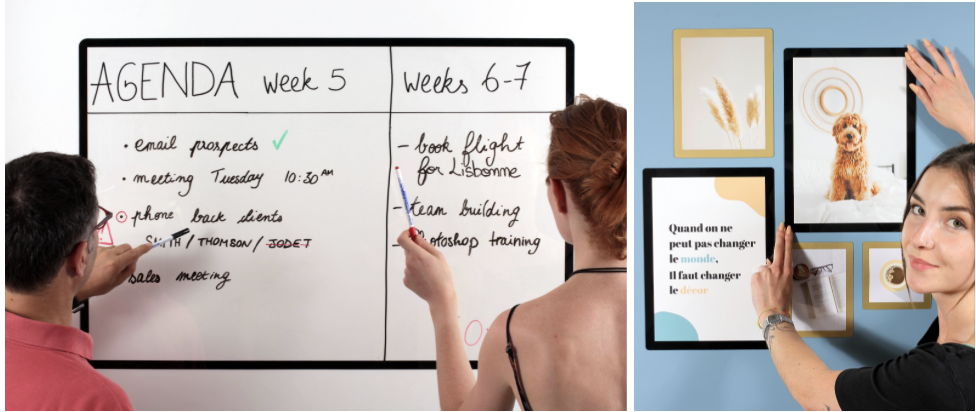 AGENDA week 5
• email prospects ✓
• meeting Tuesday 10:30 AM
• phone back clients
SMITH / THOMSON / JODET
sales meeting
weeks 6-7
– book flight
for Lisbonne
– team building
– Photoshop training
Quand on ne
peut pas changer
le monde,
Il faut changer
le décor